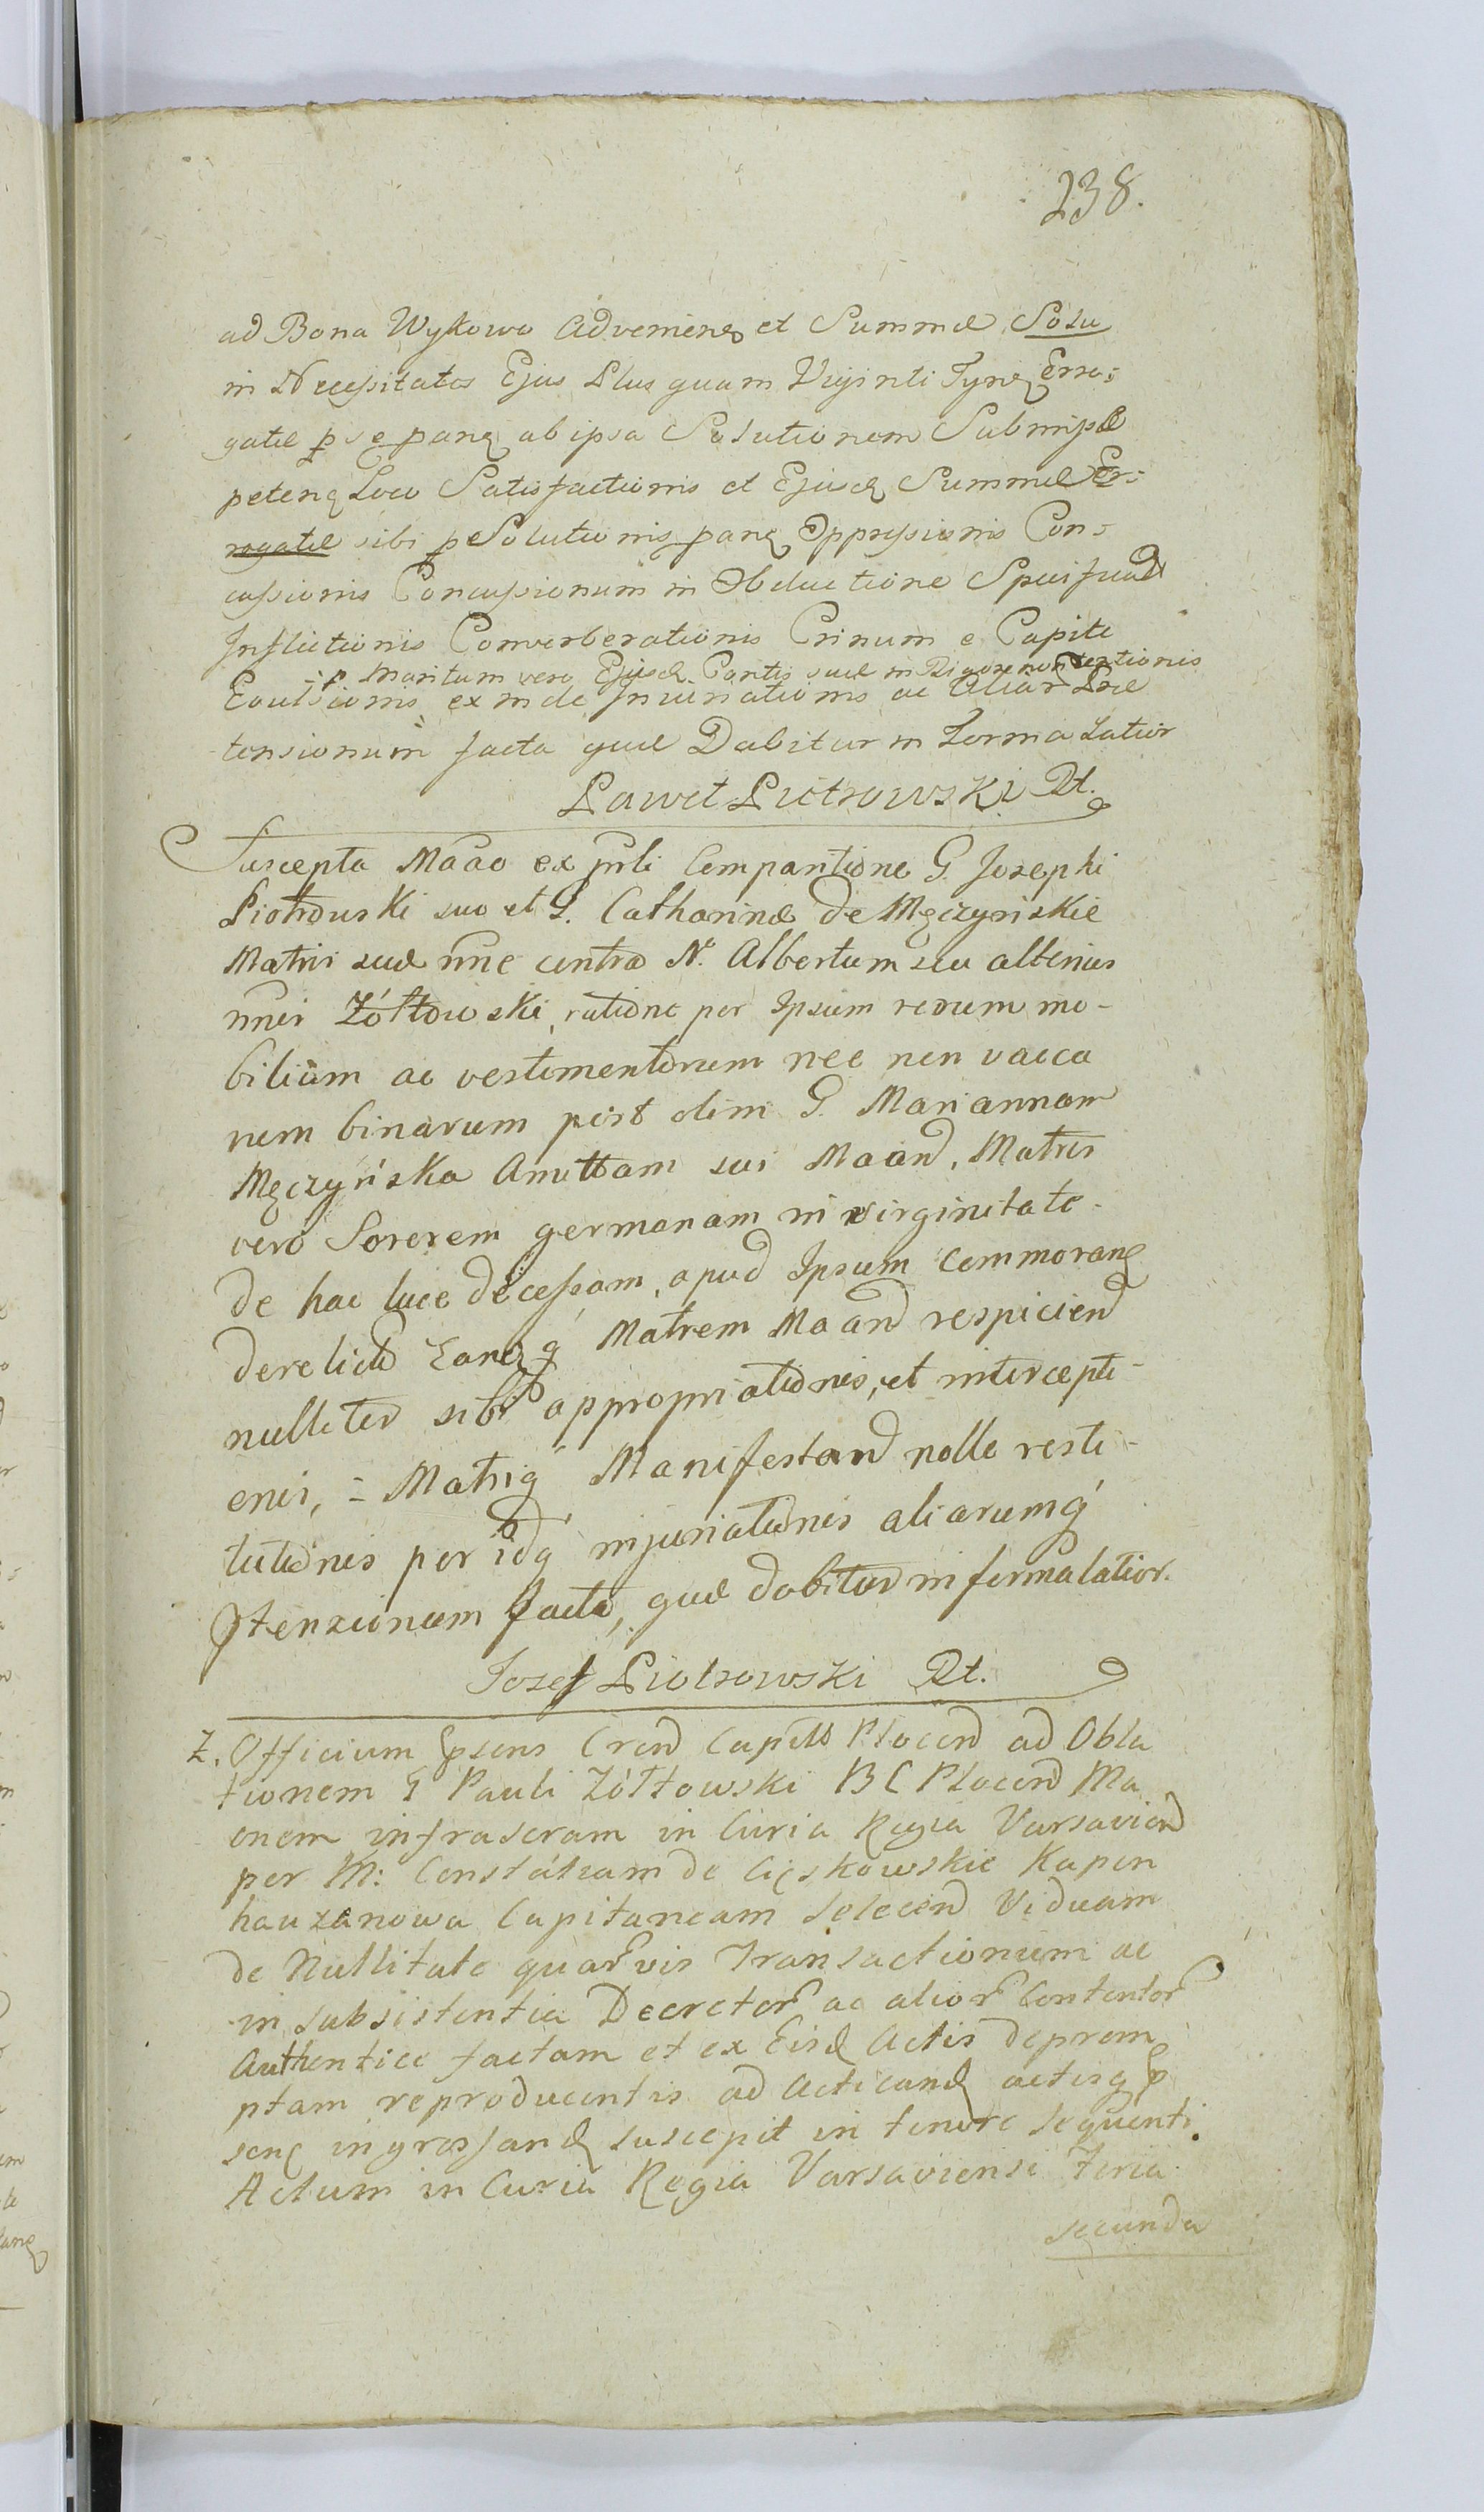 238.
ad Bona Wykowo Adveniens et Summæ Solu
in Necessitates Ejus Plus quam Viginti Tynf Erro=
gatæ p se ab ipsa Solutionem Submissæ
petens Loco Satisfactionis et Ejusd Summæ Er=
rogatæ sibi Solutionis Oppressionis Con=
cussionis Concussionum in Obductione Specificand
Inflictionis Converberationis Crinum e Capite
p Maritum vero Ejusd Partis suæ in Rigore non tentionis
Evulsionis exinde Injuriationis ac Aliar Præ
tensionum facta quæ Dabitur in Forma Latior
Paweł Piotrowski Dt.
Suscepta Maao ex prli Compantione G. Josephi
Piotrowski suo et G. Catharinæ de Męczyńskie
Matris suæ nne contra N. Albertum seu alterius
nnis Żółtowski, ratione per Ipsum rerum mo-
bilium ac vestimentorum nec non vacca
rum binarum post olim G. Mariannam
Męczyńska Amittam sui Maand, Matris
vero Sororem germanam in virginitate
de hac luce decessam, apud Ipsum commorang
derelict Matrem Maand respiciend
nulliter sibi appropriationis, et intercepti-
onis, = Matriq Manifestand nolle resti-
tutionis per idq injuriationis aliarumq
ptenzionum facta, quæ dabitur in forma latior.
Jozef Piotrowski Dt.
Z. Officium psens Crend Capitts Plocend ad Obla
tionem G Pauli Żółtowski B C Plocend Ma
onem infrascram in Curia Regia Varsaviend
per M: Constátiam de Cięskowskie Kapen
hauzanowa Capitaneam Solecend Viduam
de Nullitate quarvis Transactionum ac
in subsistentia Decretor ac alior Contentor
Authentice factam et ex Eisd Actis deprom
ptam reproducentis ad Acticand actisq p
sens ingrossand suscepit in tenore sequenti.
Actum in Curia Regia Varsaviensi Feria
secunda